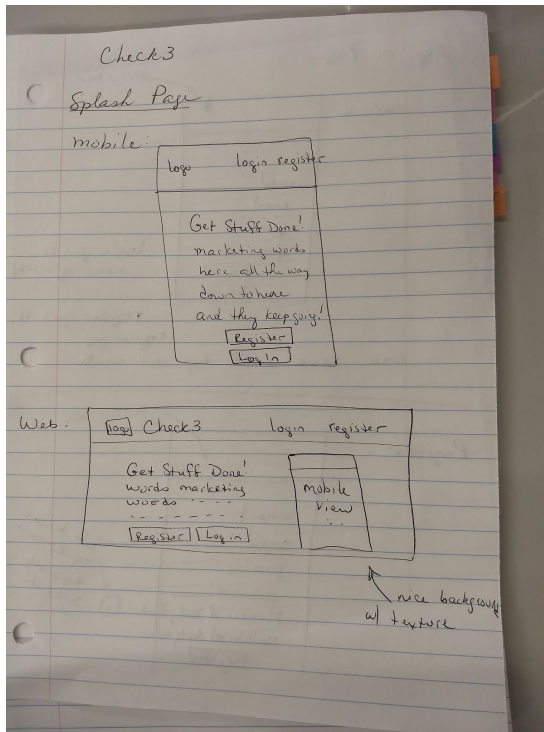 Check3
Splash Page
mobile:
logo login register
Get Stuff Done!
marketing words
here all the way
down to here
and they keep going!
Register
Log In
Web:
logo Check3 login register
Get Stuff Done!
words marketing
words
Register Log in
mobile
view
...
nice background
w/ texture